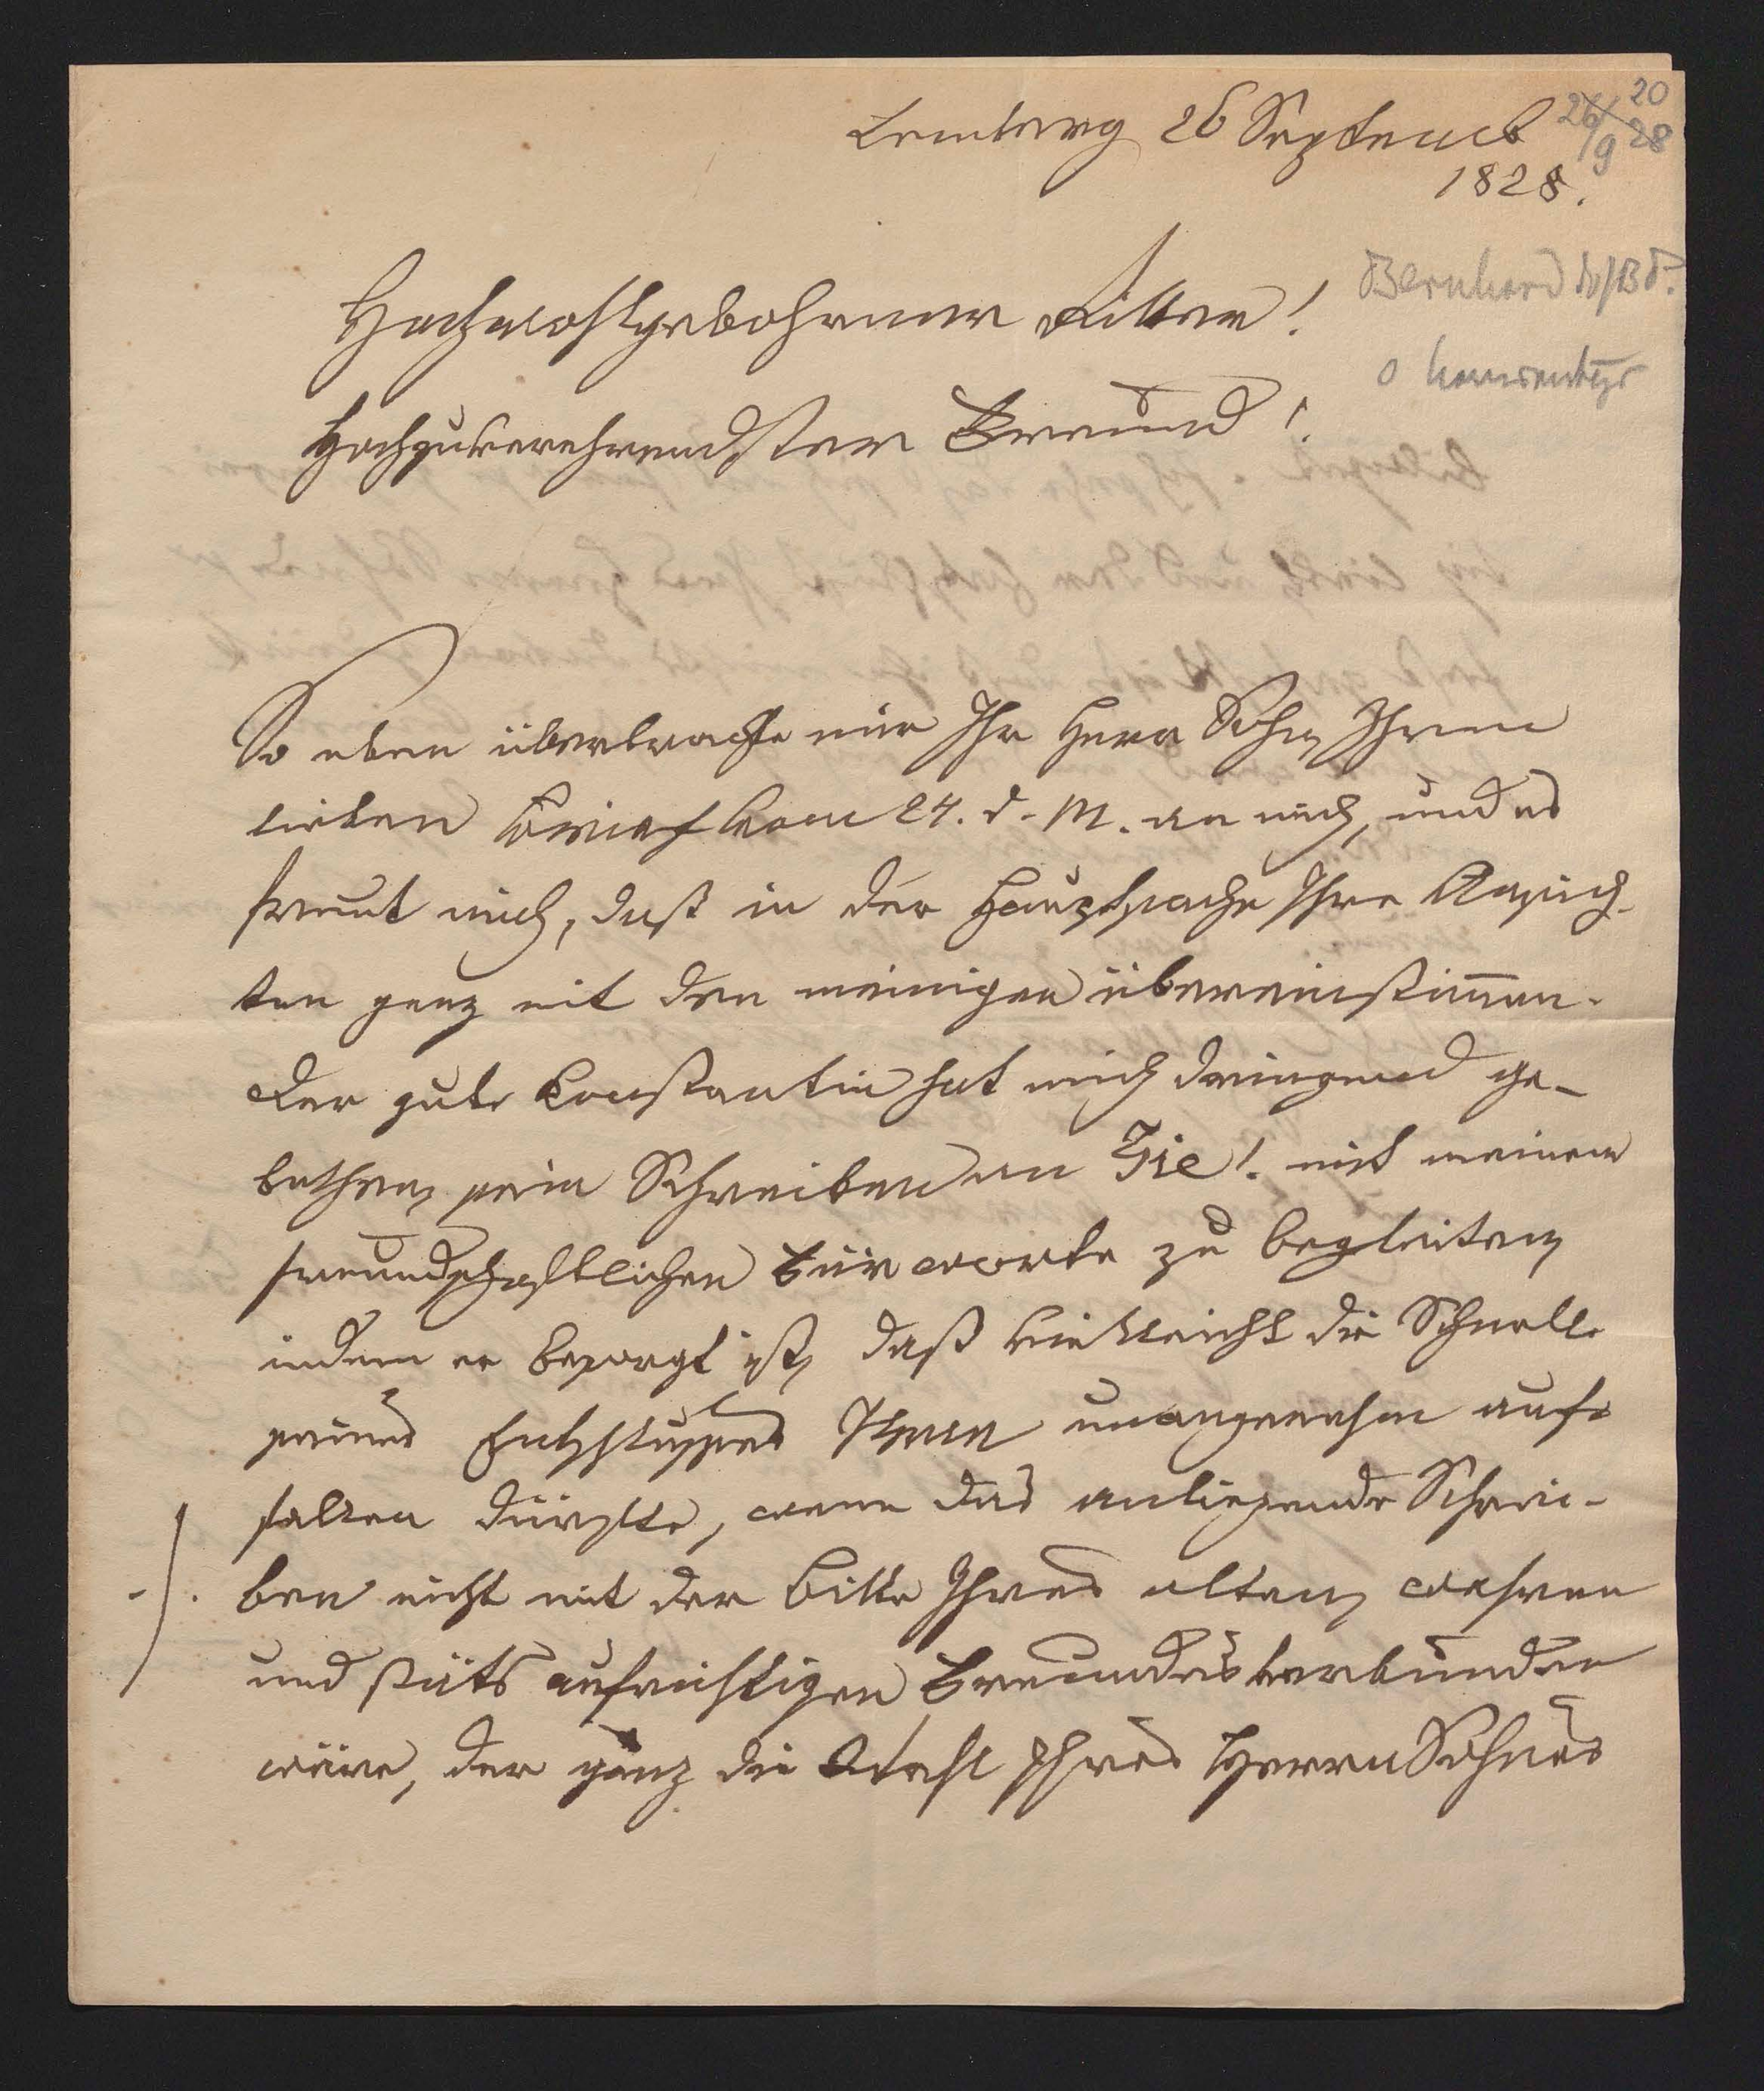 Lemberg 26 Septemb
1828.
26/9 28
20
Bernhard
Hochwohlgebohrner Ritter!
Hochzuverehrendster Freund!
So eben überbrachte mir Ihr Herr Sohn Ihren
lieben Brief vom 24. d. M. an mich, und es
freut mich, daß in der Hauptsache Ihre Ansich-
ten ganz mit den meinigen übereinstim̅en.
Der gute Constantin hat mich dringend ge-
bethen, sein Schreiben an Sie! mit meinem
freundschaftlichen Fürworte zu begleiten,
indem er besorgt ist, daß vielleicht die Schnelle
seines Entschlusses Ihnen unangenehm auf-
fallen dürfte, wenn das anliegende Schrei-
./. ben nicht mit der Bitte Ihres alten, wahren
und stäts aufrichtigen Freundes verbunden
wäre, der ganz die Wahl Ihres Herrn Sohnes